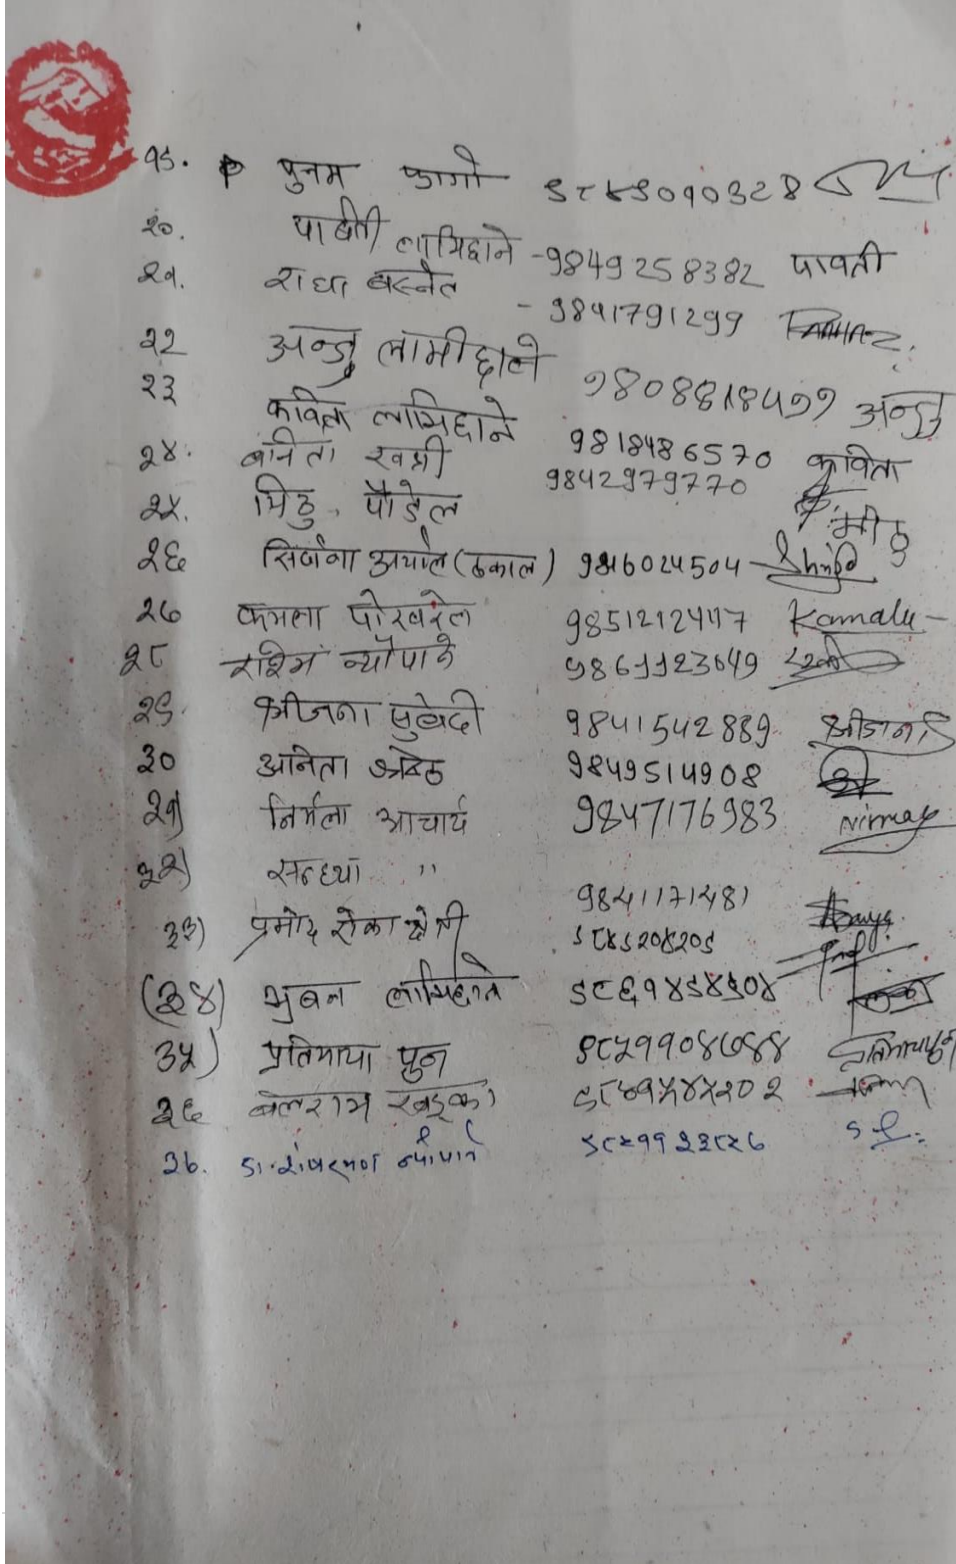 १९. पुनम फागो ९८४९०१०३२४
२०. पार्वती लामिछाने - 9849258382 पावती
२१. राधा बस्नेत - 9841791299
२२ अन्जु लामीछाने 9808818499 अन्जु
२३ कविता लामिछाने 9818486570 कविता
२४. बनिता खत्री 9842979770
२५. मिठु पौडेल मीठु
२६ सिर्जना अर्याल (ढकाल) 9816024504
२७ कमला पोखरेल 9851212447 Kamala
२८ रश्मि न्यौपाने 9861123649
२९. श्रीजना सुवेदी 9841542889
३० अनिता श्रेष्ठ 9849514908
३१) निर्मला आचार्य 9847176983
३२) सन्ध्या " 9841171481
३३) प्रमोद रोका क्षेत्री ९८४९२०४२०९
(३४) भुवन लामिछाने
३५) प्रतिमाया पुन ९८५११०४७४४
३६ बेलराम खड्का
३७. न्यौपाने